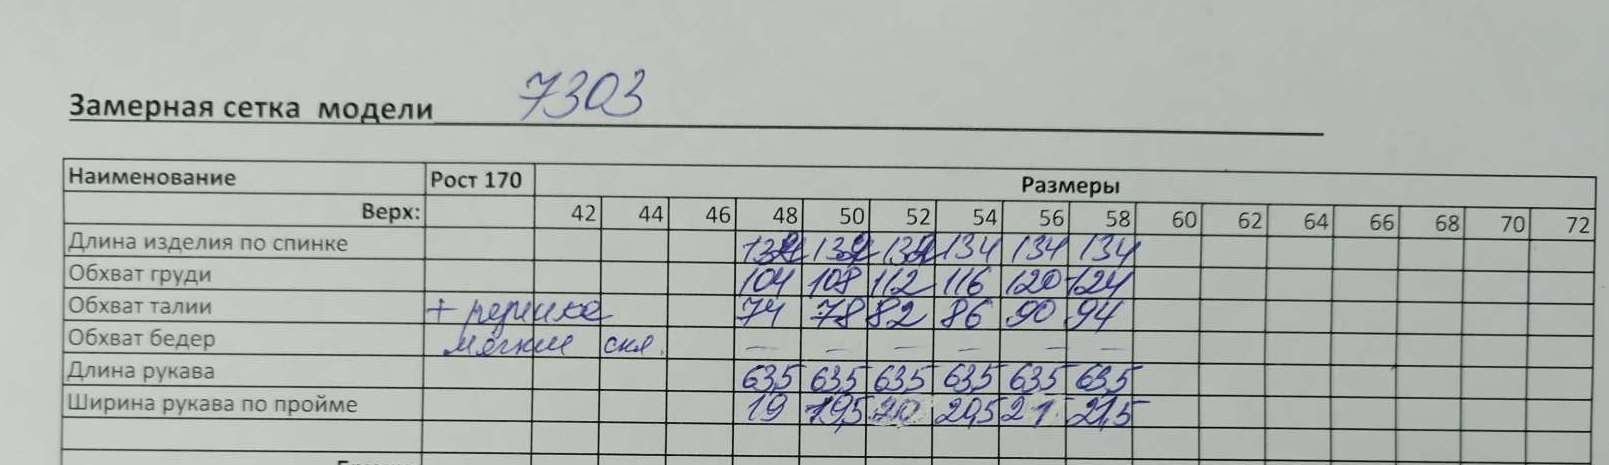 Замерная сетка модели 7303
Наименование Рост 170 Размеры
Верх: 42 44 46 48 50 52 54 56 58 60 62 64 66 68 70 72
Длина изделия по спинке 134 134 134 134 134 134
Обхват груди 104 108 112 116 120 124
Обхват талии + резинка 74 78 82 86 90 94
Обхват бедер мягкие скл. — — — — — —
Длина рукава 63,5 63,5 63,5 63,5 63,5 63,5
Ширина рукава по пройме 19 19,5 20 20,5 21 21,5